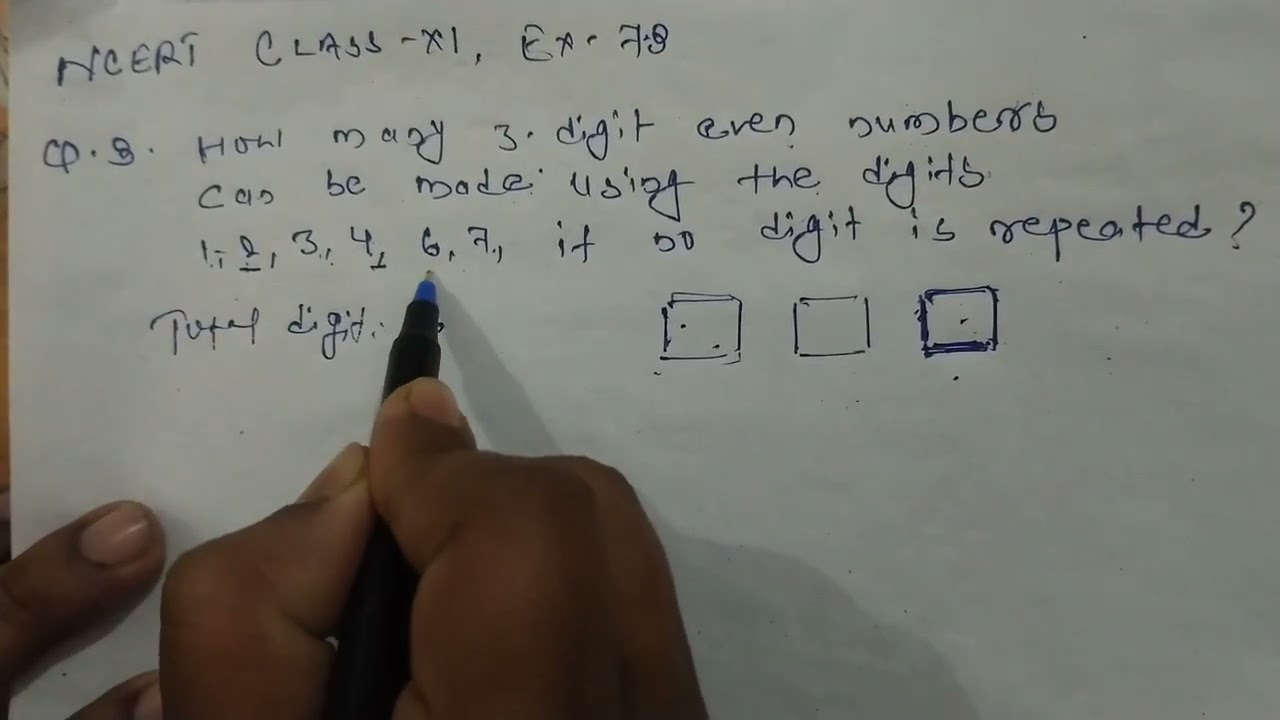 NCERT CLASS-XI, Ex. 7.3
Q.3. How many 3-digit even numbers
can be made using the digits
1, 2, 3, 4, 6, 7, if no digit is repeated?
Total digit